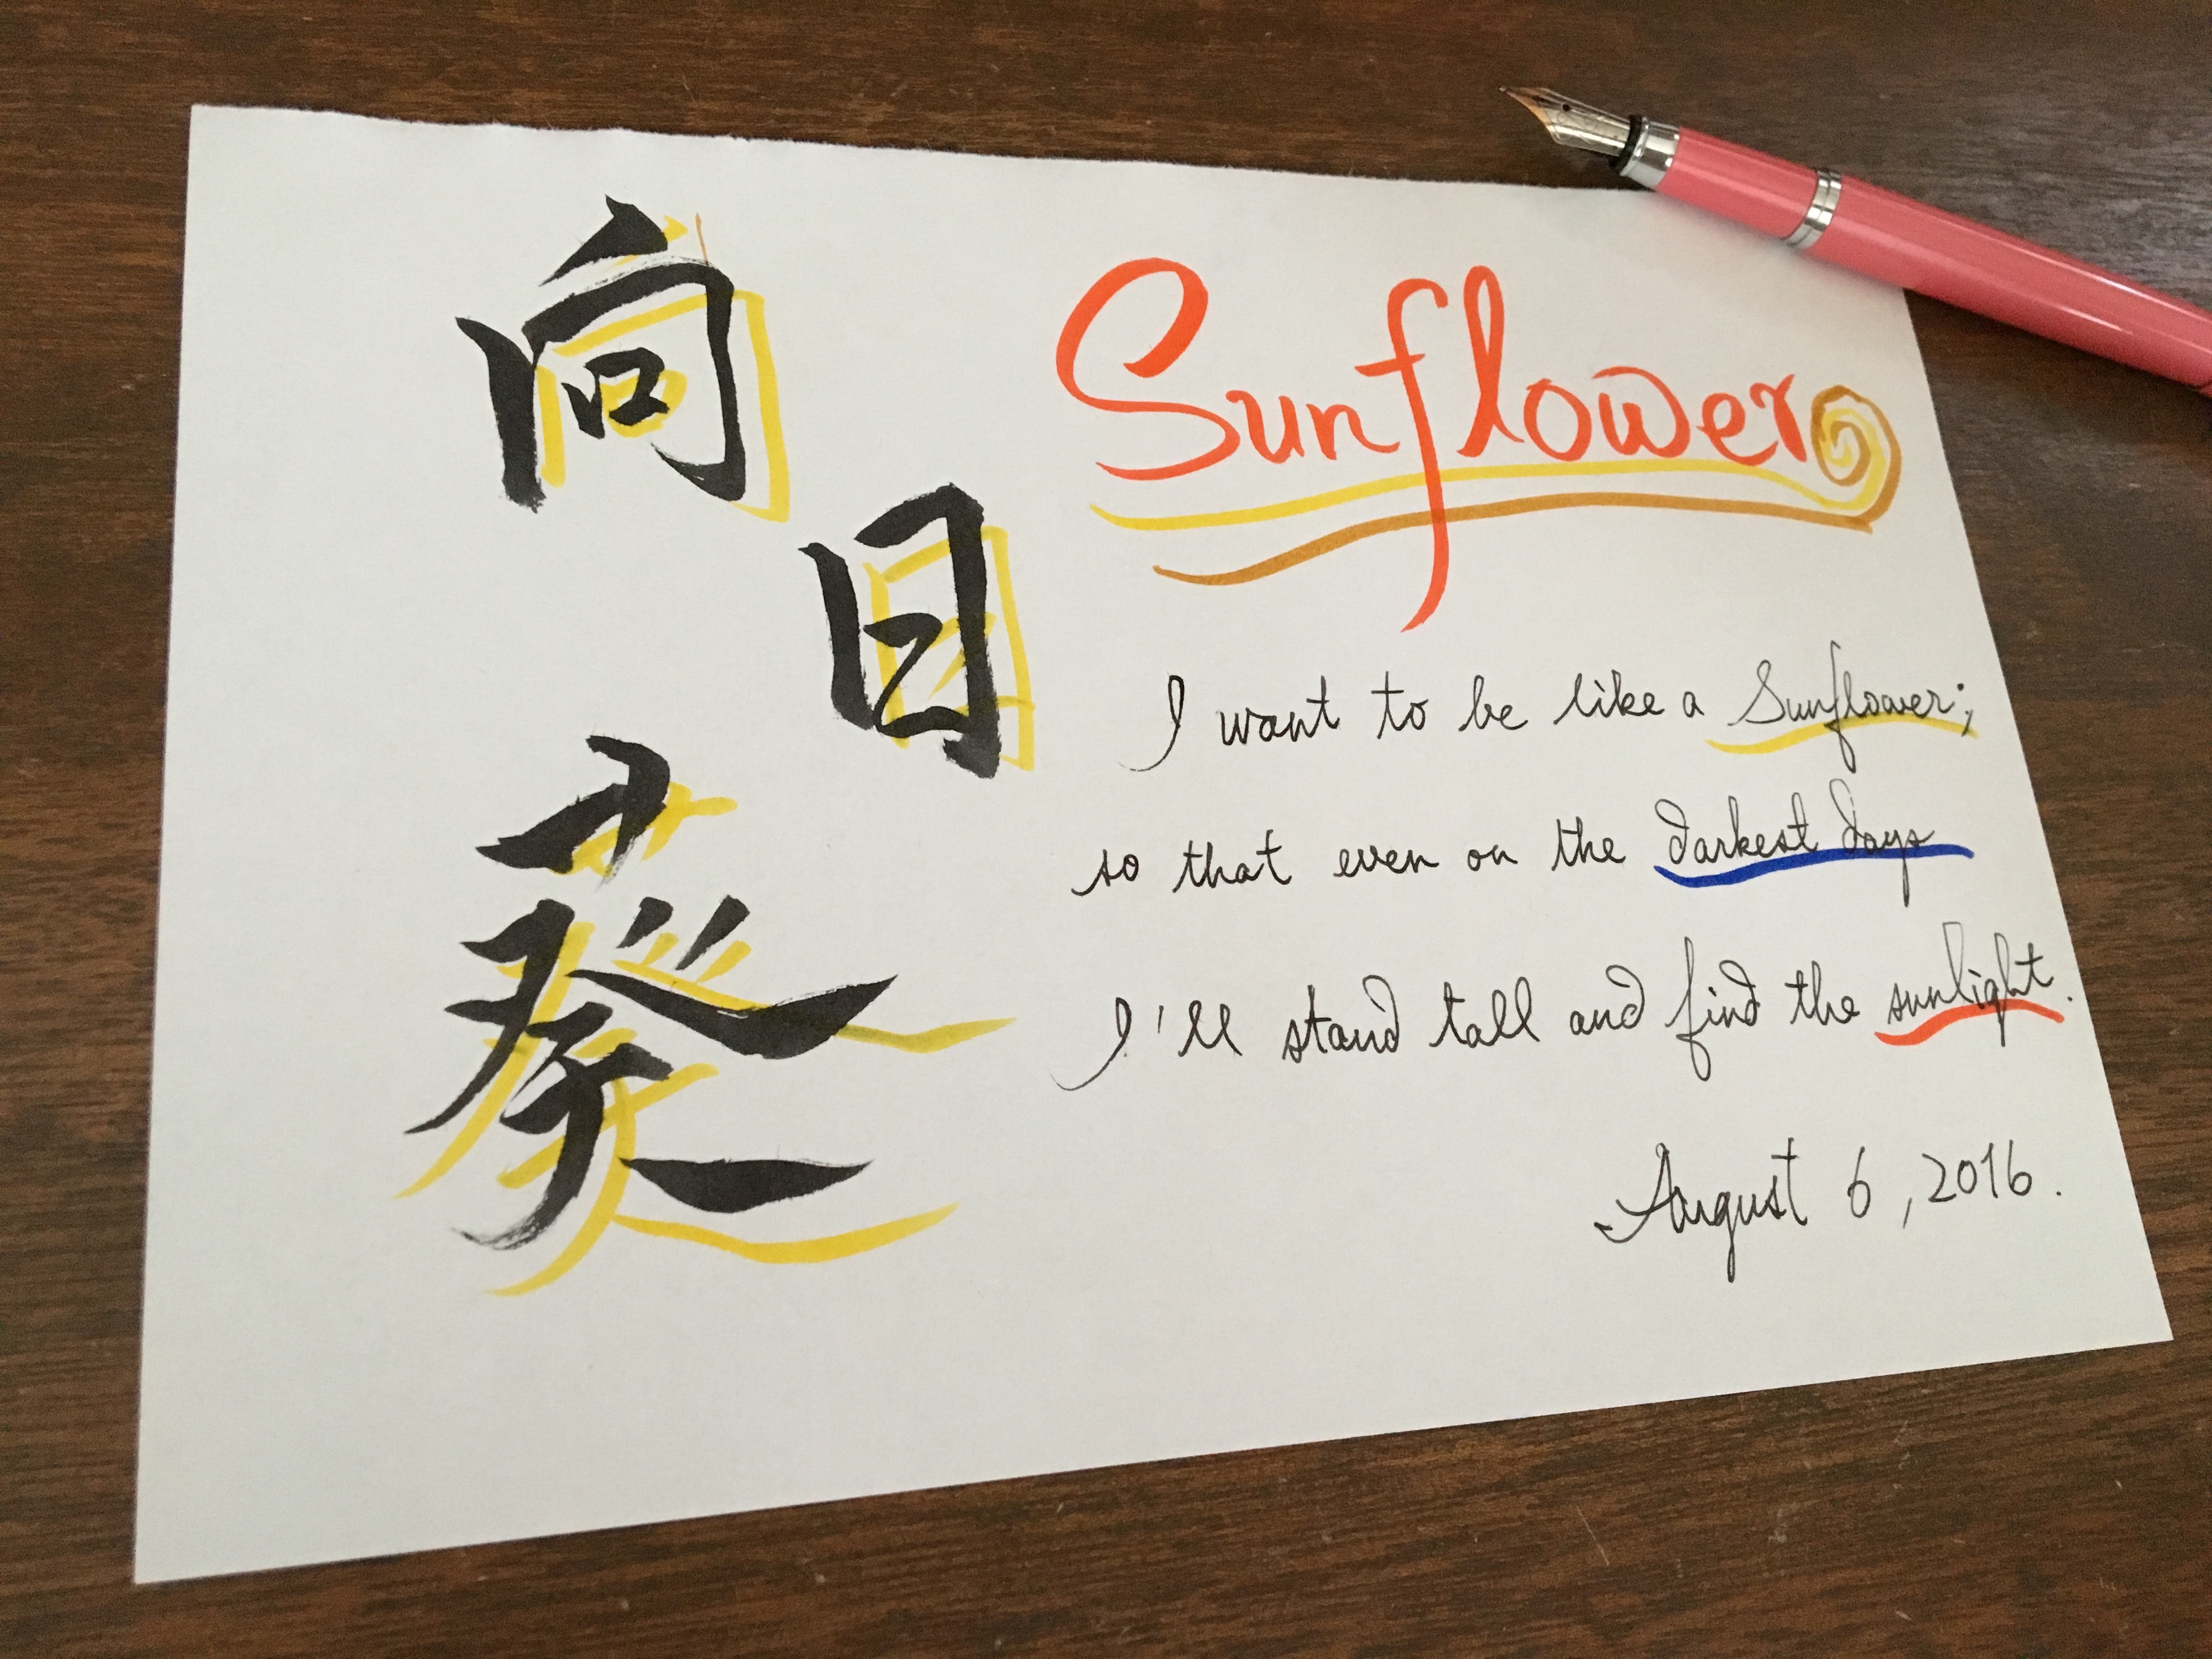 向日葵
Sunflower
I want to be like a Sunflower;
so that even on the darkest days
I'll stand tall and find the sunlight.
August 6, 2016.